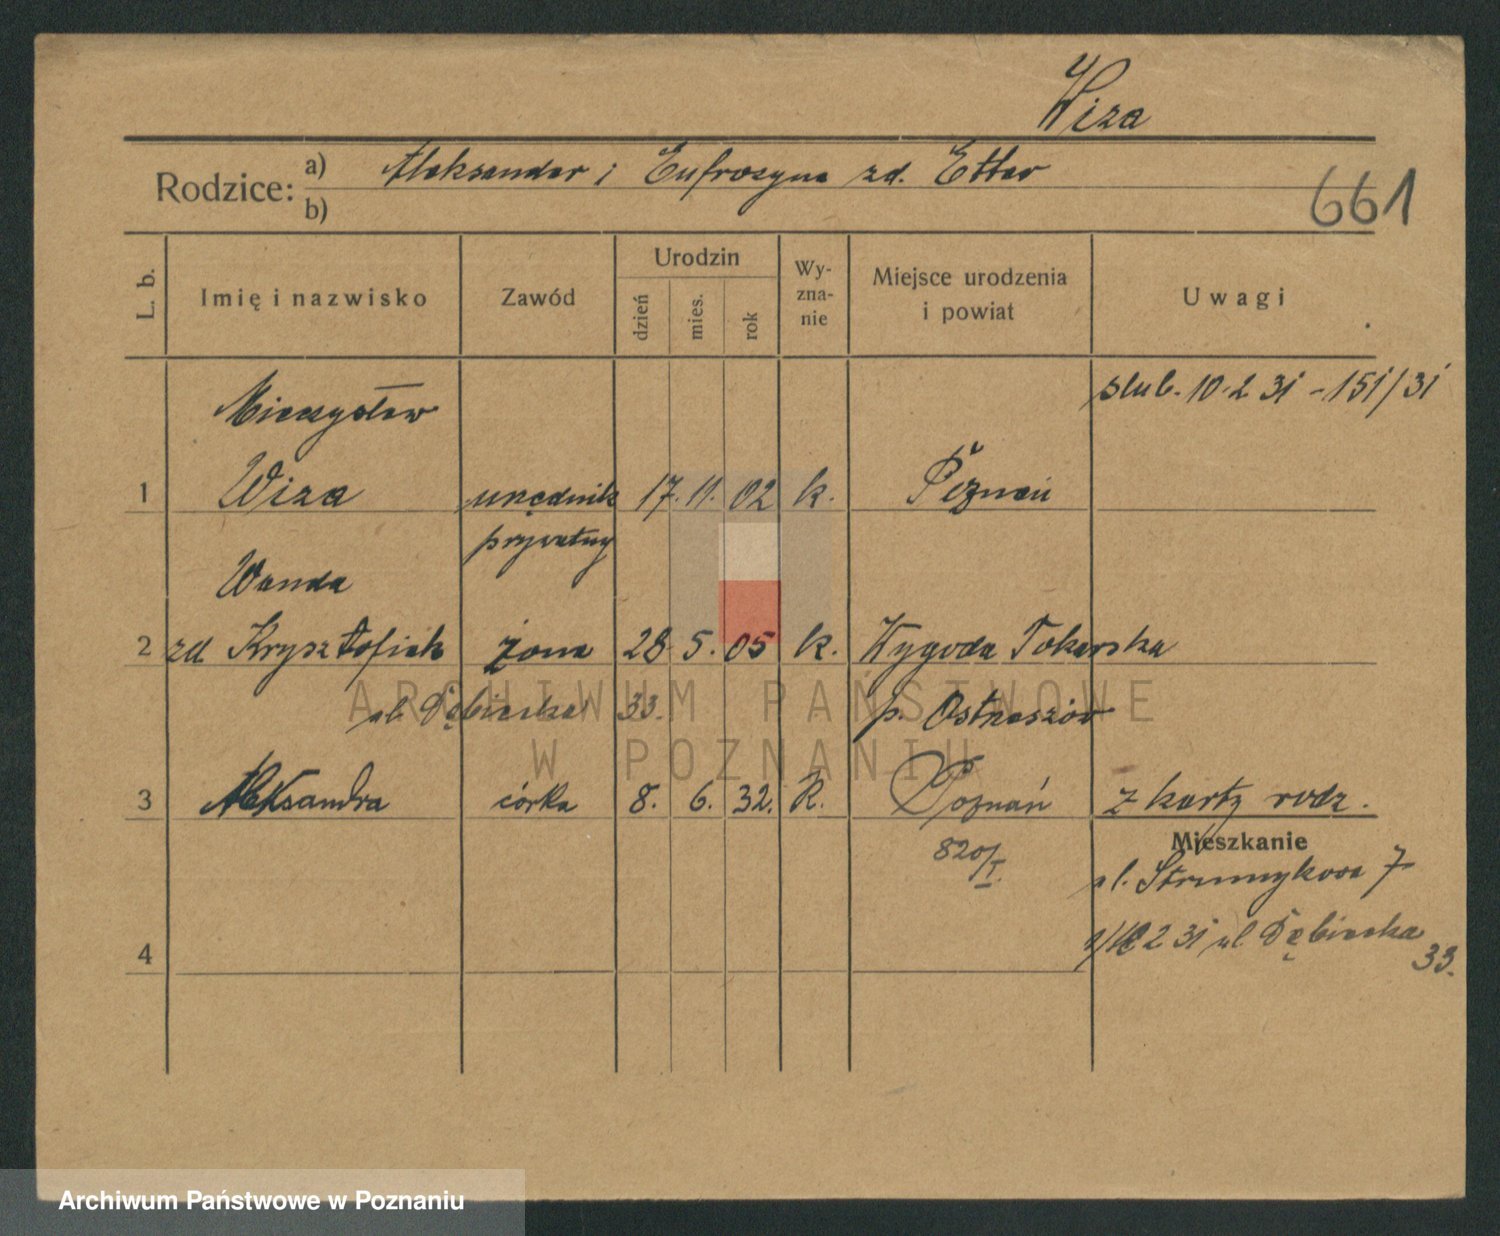 Wiza
Rodzice: a) Aleksander i Eufrozyna zd. Etter
b)
661
L. b.
Imię i nazwisko
Zawód
Urodzin
dzień
mies.
rok
Wy-
zna-
nie
Miejsce urodzenia
i powiat
Uwagi
ślub. 10.2 31 - 151/31
Mieczysław
1 Wiza urzędnik 17. 11. 02 k. Poznań
prywatny
Wanda
2 zd Krysztofiak żona 28 5. 05 k. Wygoda Tokarska
ul. Dębiecka 33. p. Ostrzeszów
ARCHIWUM PAŃSTWOWE
W POZNANIU
3 Aleksandra córka 8. 6. 32. k. Poznań z karty rodz.
820/I.
Mieszkanie
ul. Strumykowa 7
2 31 ul Dębiecka
33.
4
Archiwum Państwowe w Poznaniu